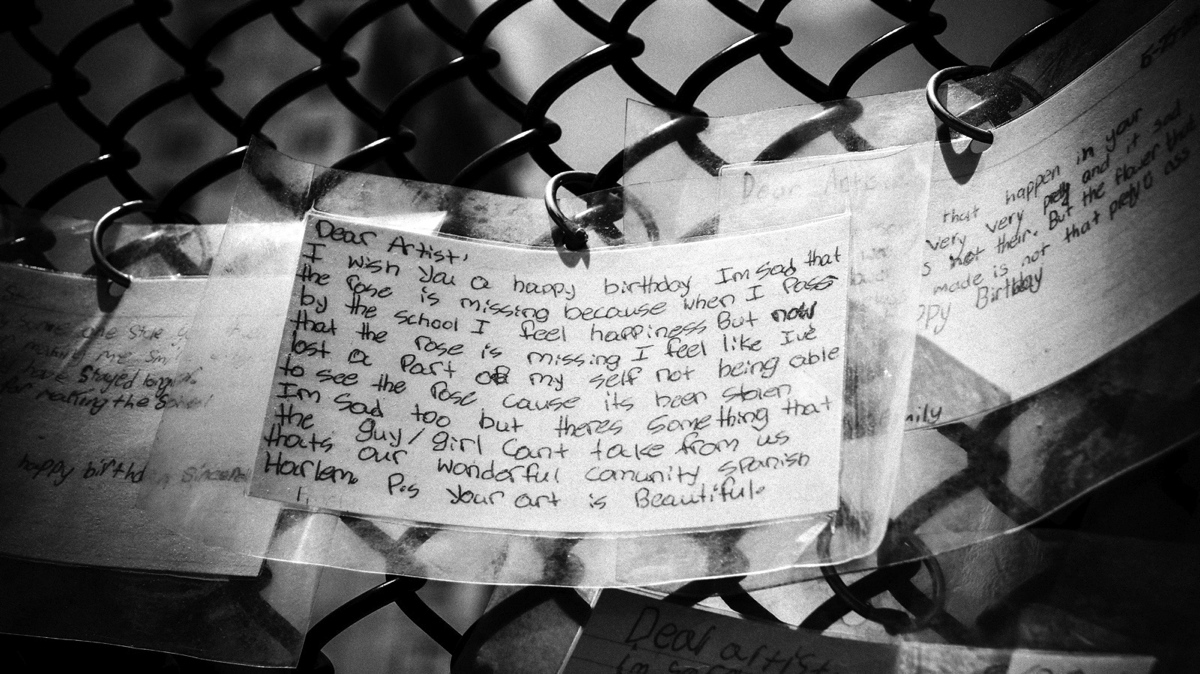 Dear Artist,
I wish you a happy birthday Im sad that
the rose is missing because when I pass
by the school I feel happiness But now
that the rose is missing I feel like I've
lost a part of my self not being able
to see the rose cause its been stolen
Im sad too but theres something that
the guy/girl Cant take from us
thats our wonderful comunity spanish
Harlem. P.s your art is Beautiful.
Dear Artist
that happen in your
very very and it sad
s not their. But the flower that
made is not that prety
ppy Birthday
mily
me
Stayed longer.
for making the School
happy birthd
Sincerel
Dear artist